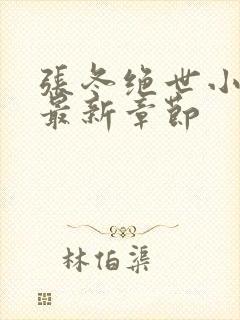 張冬绝世小
最新章節
林伯渠